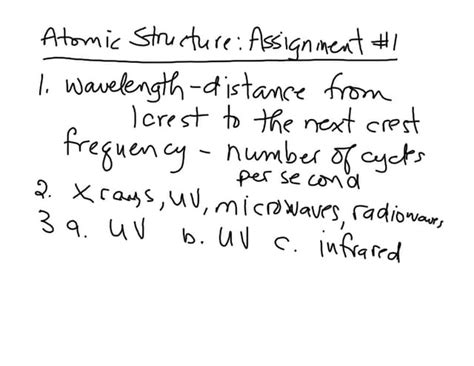 Atomic Structure: Assignment #1
1. wavelength - distance from
1 crest to the next crest
frequency - number of cycles
per second
2. X rays, UV, microwaves, radiowaves
3 a. UV b. UV c. infrared